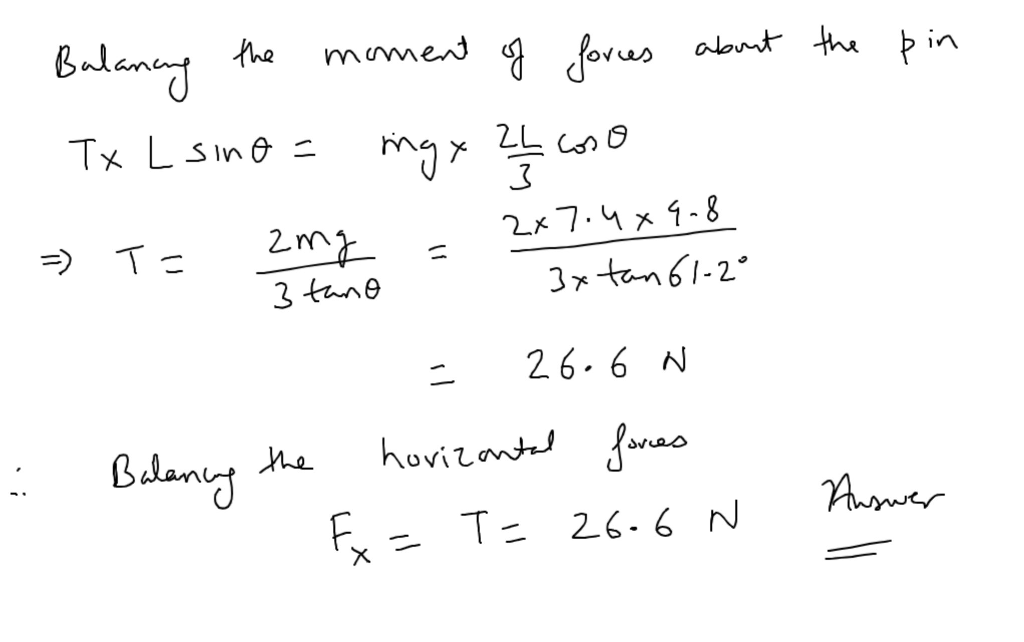 Balancing the moment of forces about the pin
T x L sin θ = mg x 2L/3 cos θ
⇒ T = 2mg / 3 tan θ = 2 x 7.4 x 9.8 / 3 x tan 61.2°
= 26.6 N
∴ Balancing the horizontal forces
Fx = T = 26.6 N Answer